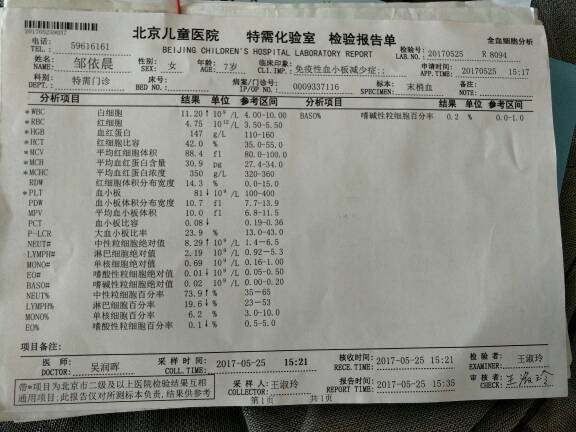 20170525G0HZ
北京儿童医院 特需化验室 检验报告单 全血细胞分析
BEIJING CHILDREN'S HOSPITAL LABORATORY REPORT
电话: TEL.: 59616161 检验号 LAB.NO. 20170525 R 8094
姓名 NAME: 邹依晨 性别: SEX: 女 年龄: AGE: 7岁 临床印象: CLI.IMP.: 免疫性血小板减少症;; 申请时间 APP.TIME: 20170525 15:17
科别: DEPT.: 特需门诊 床号: BED NO.: 病案/门诊号: IP/OP NO.: 0009337116 标本: SPECIMEN: 末梢血
分析项目 结果 单位 参考区间 分析项目 结果 单位 参考区间
*WBC 白细胞 11.20↑ 10⁹ /L 4.00-10.00 BASO% 嗜碱性粒细胞百分率 0.2 % 0.0-1.0
*RBC 红细胞 4.75 10¹² /L 3.50-5.50
*HGB 血红蛋白 147 g/L 110-160
*HCT 红细胞比容 42.0 % 35.0-55.0
*MCV 平均红细胞体积 88.4 fl 80.0-100.0
*MCH 平均血红蛋白含量 30.9 pg 27.4-34.0
*MCHC 平均血红蛋白浓度 350 g/L 320-360
RDW 红细胞体积分布宽度 14.3 % 0.0-15.0
*PLT 血小板 81↓ 10⁹ /L 100-400
PDW 血小板体积分布宽度 10.7 fl 7.7-13.9
MPV 平均血小板体积 10.0 fl 6.8-11.5
PCT 血小板比容 0.08↓ % 0.19-0.36
P-LCR 大血小板比率 23.9 % 13.0-43.0
NEUT# 中性粒细胞绝对值 8.29↑ 10⁹ /L 1.4-6.5
LYMPH# 淋巴细胞绝对值 2.19 10⁹ /L 0.92-5.3
MONO# 单核细胞绝对值 0.69 10⁹ /L 0.16-1.00
EO# 嗜酸性粒细胞绝对值 0.01↓ 10⁹ /L 0.05-0.50
BASO# 嗜碱性粒细胞绝对值 0.02 10⁹ /L 0.00-0.20
NEUT% 中性粒细胞百分率 73.9↑ % 35-65
LYMPH% 淋巴细胞百分率 19.6↓ % 23-53
MONO% 单核细胞百分率 6.2 % 3.0-10.0
EO% 嗜酸性粒细胞百分率 0.1↓ % 0.5-5.0
项目备注:
医师: DOCTOR: 吴润晖 采样时间: COLL.TIME: 2017-05-25 15:21 核收时间: RECE.TIME: 2017-05-25 15:21 检验者: EXAMINER: 王淑玲
带*项目为北京市二级及以上医院检验结果互相
通用项目;此报告仅对所测标本负责,结果供参考
采样人: COLLECTOR: 王淑玲 报告时间: REPORT TIME: 2017-05-25 15:35 审核者: CHECK: 王淑玲
第1页 共1页